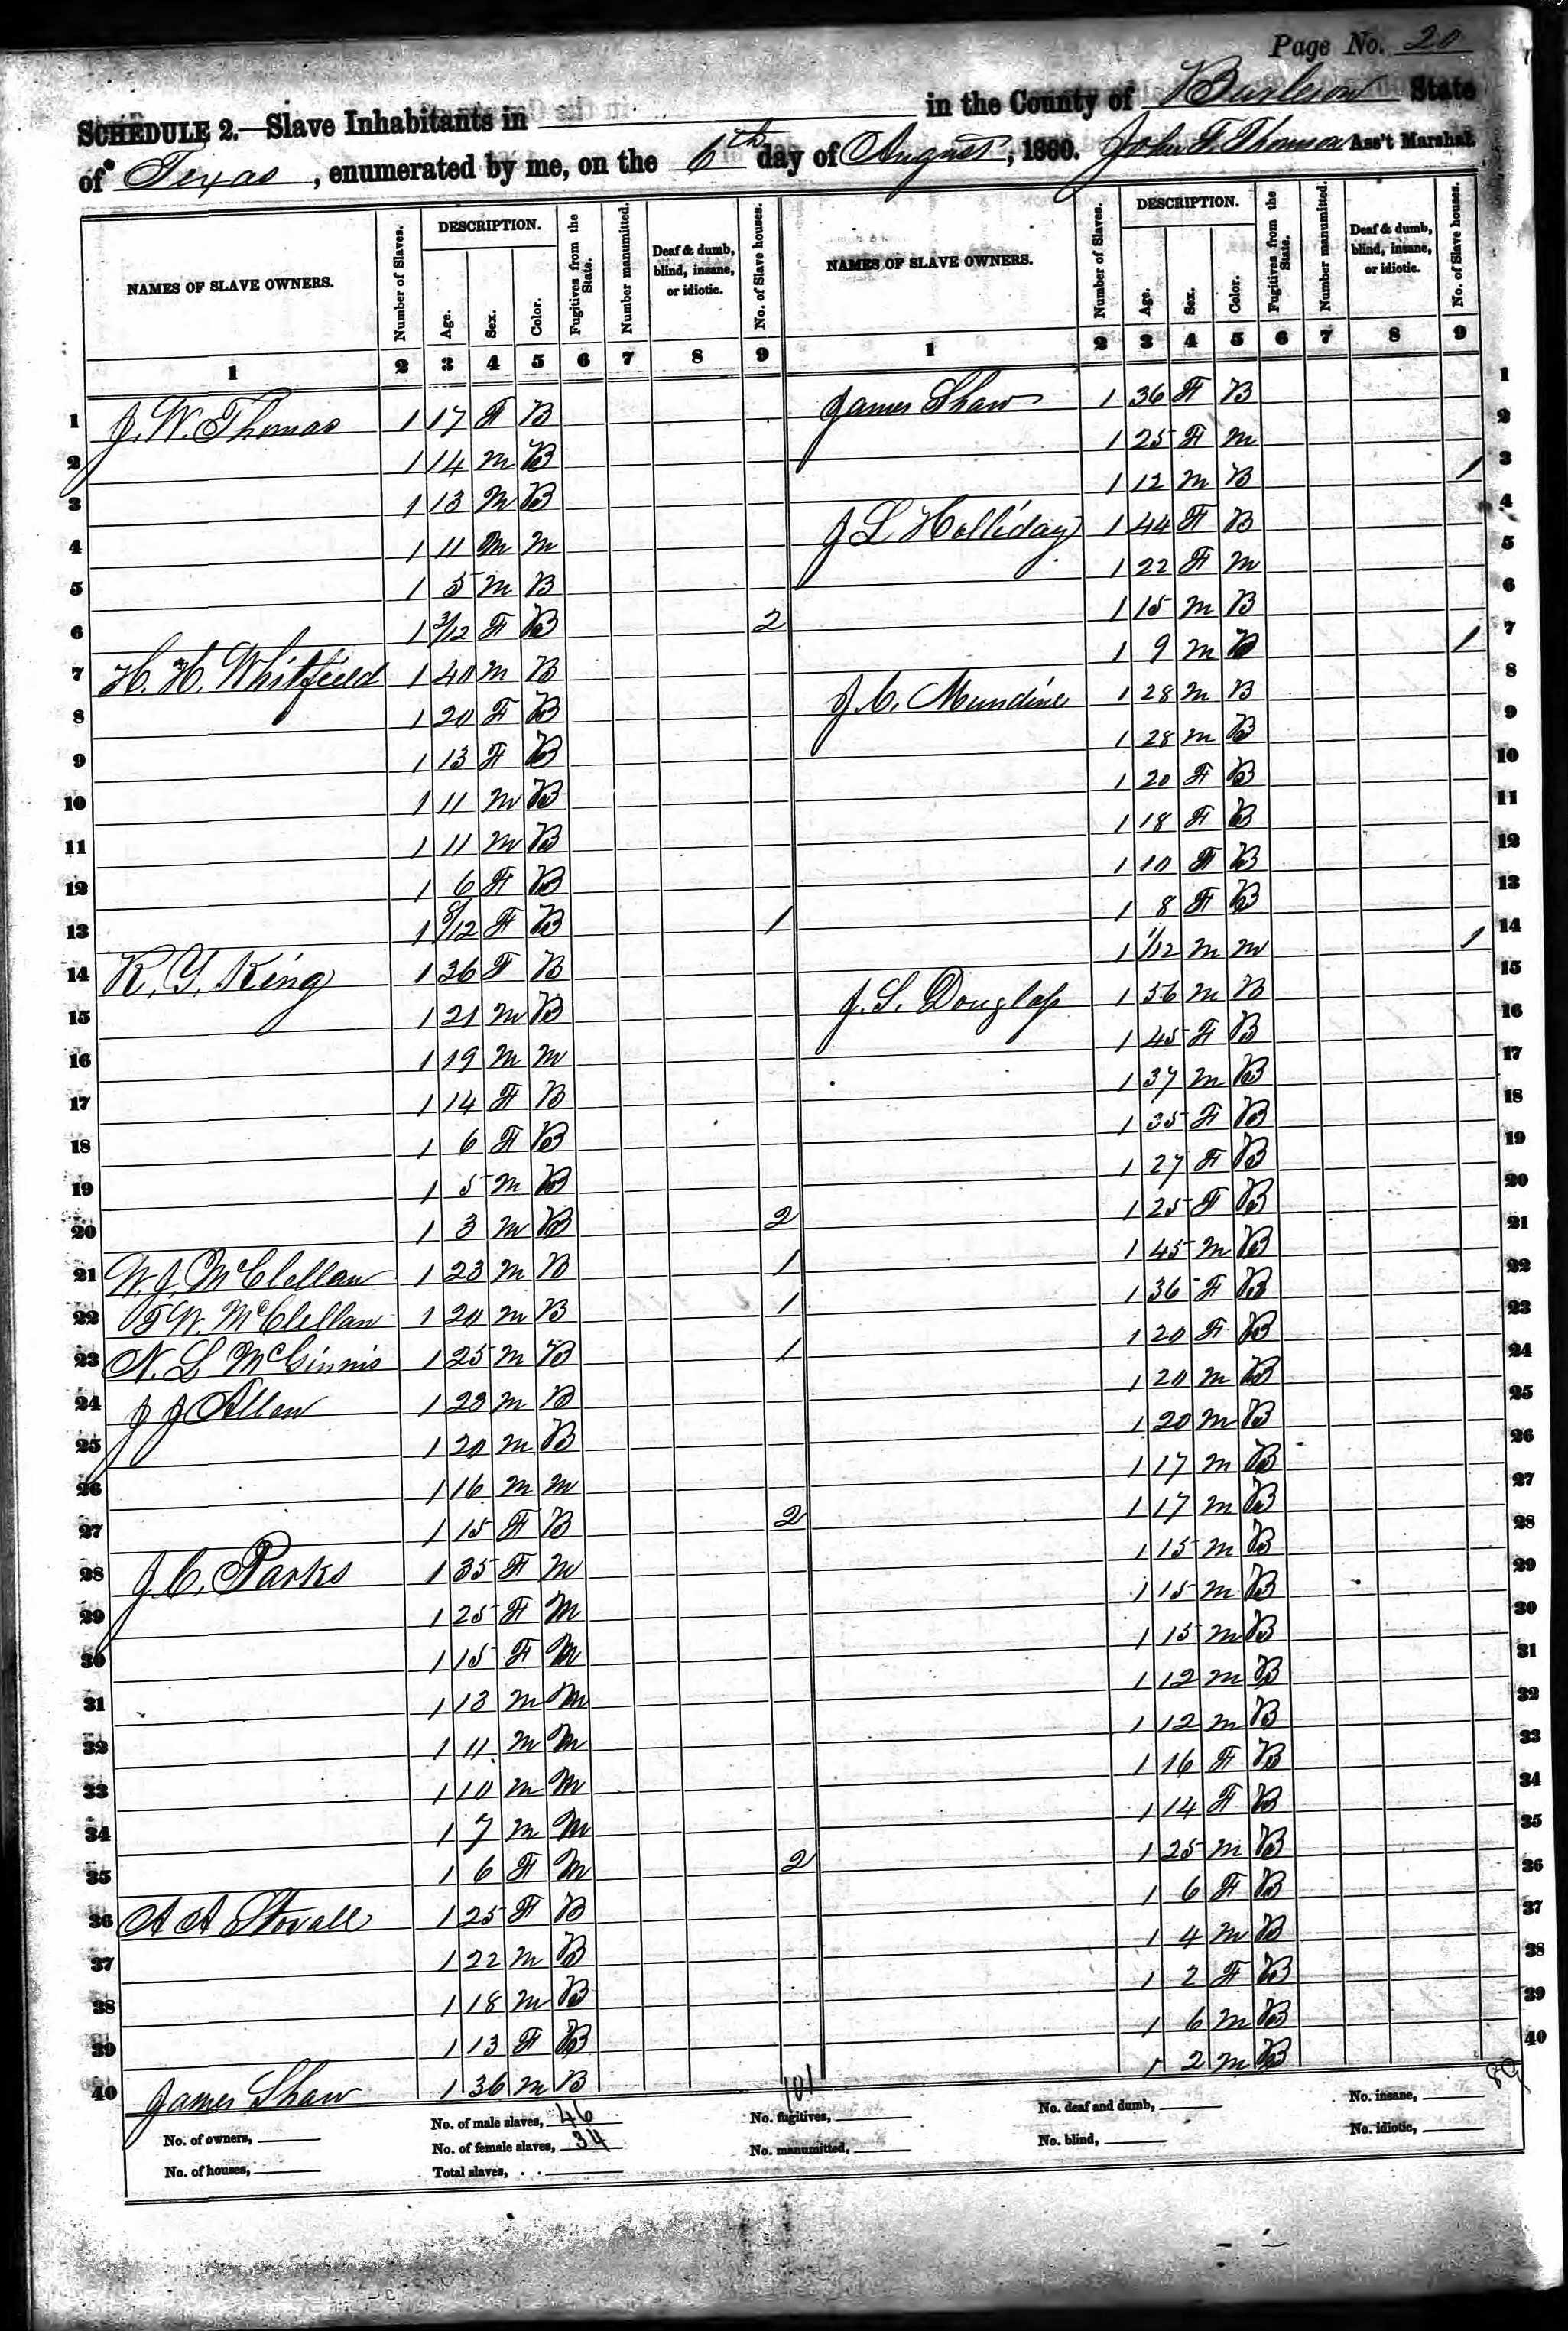 Page No. 20
SCHEDULE 2.—Slave Inhabitants in in the County of Burleson State
of Texas, enumerated by me, on the 6th day of August, 1860. John F. Thomson Ass't Marshal.
NAMES OF SLAVE OWNERS. Number of Slaves. DESCRIPTION. Age. Sex. Color. Fugitives from the State. Number manumitted. Deaf & dumb, blind, insane, or idiotic. No. of Slave houses. NAMES OF SLAVE OWNERS. Number of Slaves. DESCRIPTION. Age. Sex. Color. Fugitives from the State. Number manumitted. Deaf & dumb, blind, insane, or idiotic. No. of Slave houses.
1 2 3 4 5 6 7 8 9 1 2 3 4 5 6 7 8 9
1 J. W. Thomas 1 17 F B James Shaw 1 36 F B 1
2 1 14 m B 1 25 F m 2
3 1 13 M B 1 12 m B 1 3
4 1 11 m m J L Holliday 1 44 F B 4
5 1 5 m B 1 22 F m 5
6 1 3/12 F B 2 1 15 m B 6
7 H. H. Whitfield 1 40 m B 1 9 m B 1 7
8 1 20 F B J. C. Mundine 1 28 m B 8
9 1 13 F B 1 28 m B 9
10 1 11 m B 1 20 F B 10
11 1 11 m B 1 18 F B 11
12 1 6 F B 1 10 F B 12
13 1 8/12 F B 1 1 8 F B 13
14 R. Y. King 1 36 F B 1 1/12 m m 1 14
15 1 21 m B J. S. Douglass 1 56 m B 15
16 1 19 m m 1 45 F B 16
17 1 14 F B 1 37 m B 17
18 1 6 F B 1 35 F B 18
19 1 5 m B 1 27 F B 19
20 1 3 m B 2 1 25 F B 20
21 W. J. McClellan 1 23 m B 1 1 45 m B 21
22 T W. McClellan 1 20 m B 1 1 36 F B 22
23 N. L McGinnis 1 25 m B 1 1 20 F B 23
24 J J Allen 1 23 m B 1 20 m B 24
25 1 20 m B 1 20 m B 25
26 1 16 m m 1 17 m B 26
27 1 15 F B 2 1 17 m B 27
28 J. C. Parks 1 35 F m 1 15 m B 28
29 1 25 F M 1 15 m B 29
30 1 15 F M 1 15 m B 30
31 1 13 m M 1 12 m B 31
32 1 11 m M 1 12 m B 32
33 1 10 m M 1 16 F B 33
34 1 7 m M 1 14 F B 34
35 1 6 F M 2 1 25 m B 35
36 A A Stovall 1 25 F B 1 6 F B 36
37 1 22 m B 1 4 m B 37
38 1 18 m B 1 2 F B 38
39 1 13 F B 1 6 m B 39
40 James Shaw 1 36 m B 1 2 m B 40
101
No. of owners, No. of male slaves, 46 No. fugitives, No. deaf and dumb, No. insane,
No. of houses, No. of female slaves, 34 No. manumitted, No. blind, No. idiotic,
Total slaves,